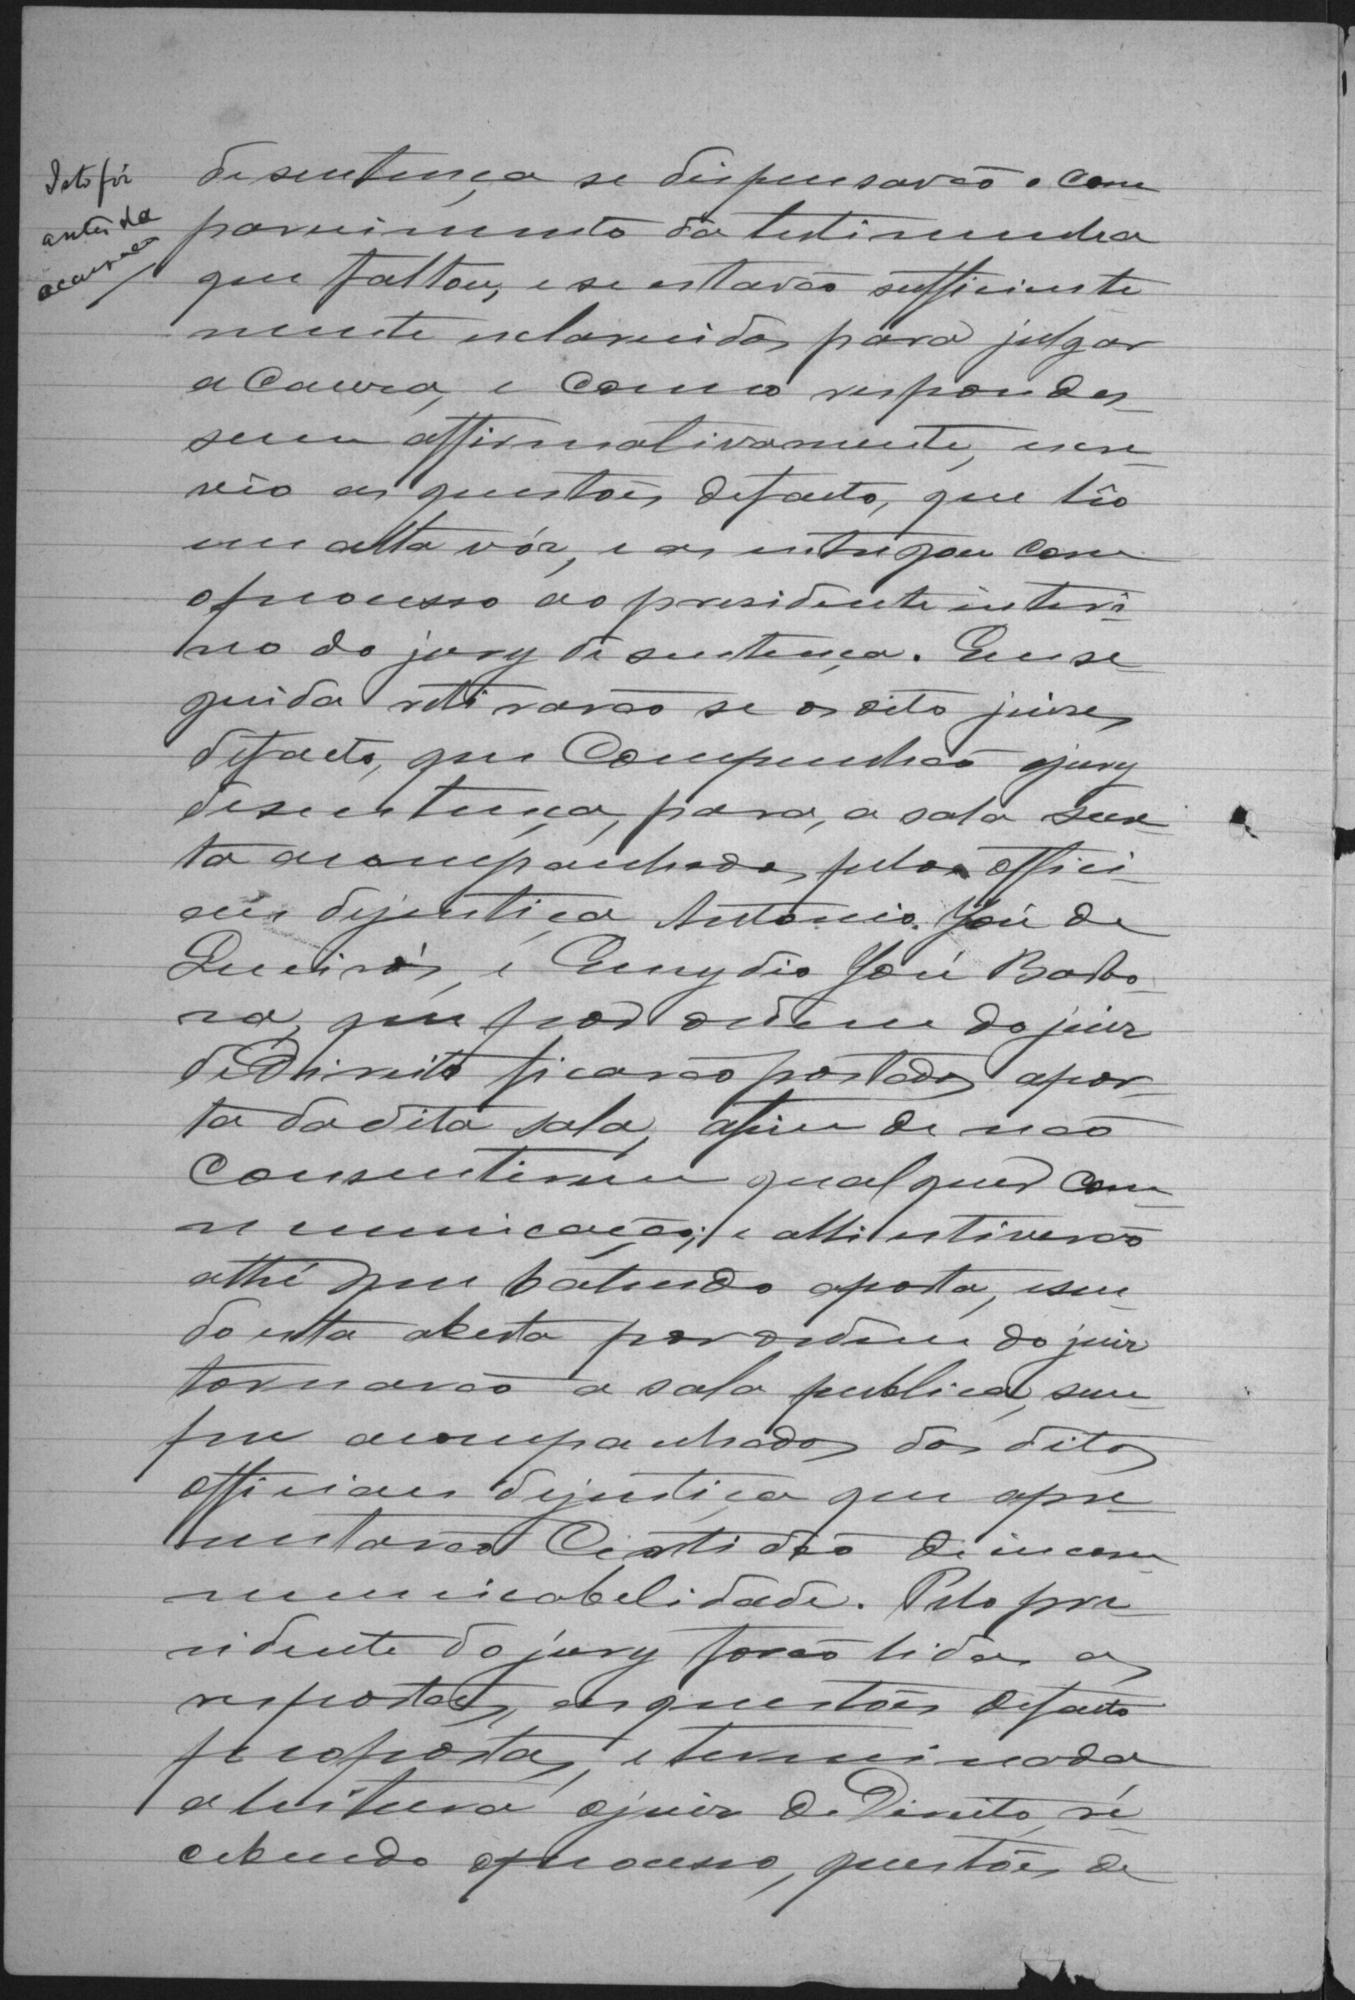 Isto foi
antes da
accusação
de sentença se dispensavão o com
parecimento da testimunha
que faltou, e se estavão sufficiente
mente esclarecidos para julgar
a causa, e como respondes-
sem affirmativamente, escre-
veo as questões defacto, que lêo
em alta vóz, e as entregou com
o processo ao presidente interi-
no do jury de sentença. Em se
guida retirarão se os oito juizes
defacto, que Compunhão o jury
de sentença, para, a sala secre
ta acompanhados pelos offici-
aes dejustiça Antonio José de
Queirós, e Emydio José Barbo-
za, que por ordem do juiz
de Direito ficarão postados a por-
ta da dita sala, afim de não
consentirem qualquer com-
municação; e alli estiverão
athé que batendo a porta, e sen-
do esta aberta por ordem do juiz
tornarão a sala publica, sem-
pre acompanhados dos ditos
officiaes dejustiça que apre-
sentarão Certidão de incom
municabelidade. Pelo pre-
sidente do jury forão lidas as
respostas, as questões defacto
propostas, e terminada
a leitura o juiz de Direito, re-
cebendo o processo, questões de